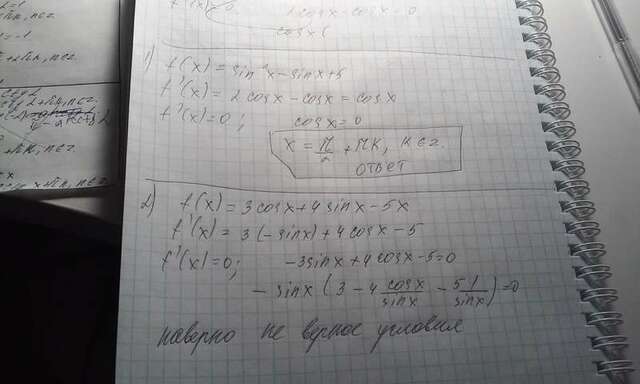 f'(x)=0. 2 cosx - cosx = 0
cosx (
1) f(x) = sin²x - sinx + 5
f'(x) = 2 cosx - cosx = cosx
f'(x)=0; cosx=0
x = π/2 + πk, k∈z.
ответ
2) f(x) = 3 cosx + 4 sinx - 5x
f'(x) = 3(-sinx) + 4 cosx - 5
f'(x)=0; -3sinx + 4cosx - 5 = 0
- sinx ( 3 - 4 cosx/sinx - 5 1/sinx ) = 0
наверно не верное условия